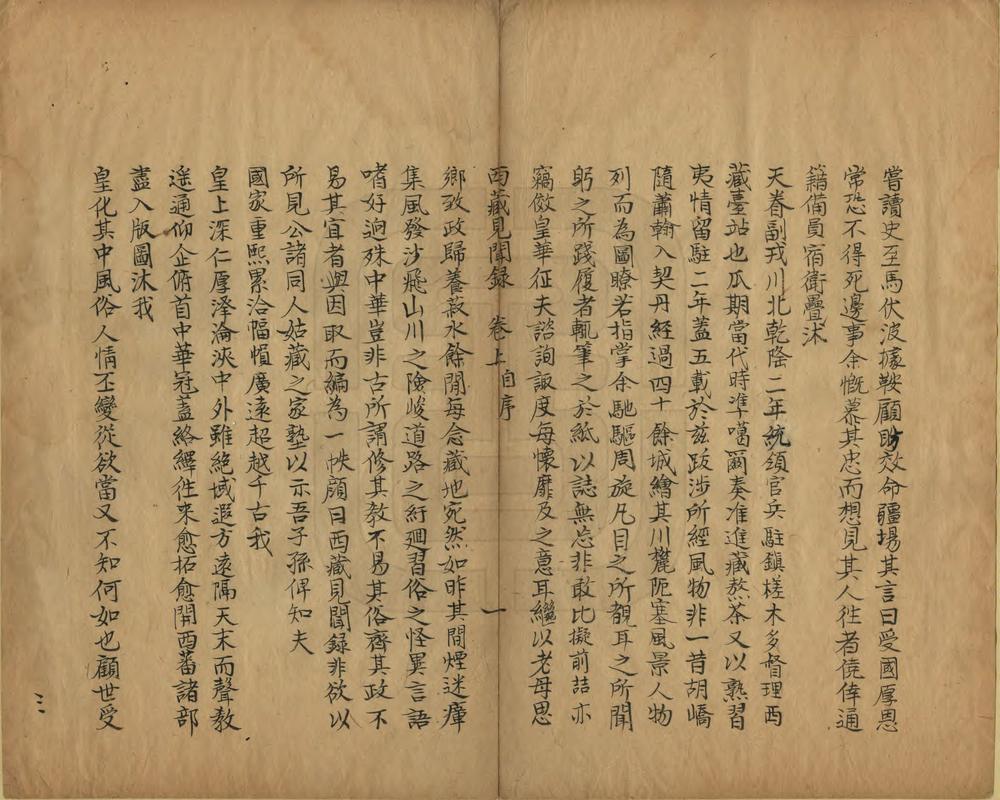 嘗讀史至馬伏波據鞍顧盼效命疆場其言曰受國厚恩
常恐不得死邊事余慨慕其忠而想見其人徃者僥倖通
籍備員宿衛疊沐
天眷副戎川北乾隆二年統領官兵駐鎮槎木多督理西
藏臺站也瓜期當代時準噶爾奏准進藏熬茶又以熟習
夷情留駐二年蓋五載於茲跋涉所經風物非一昔胡嶠
隨蕭翰入契丹經過四十餘城繪其川麓阨塞風景人物
列而為圖瞭若指掌余馳驅周旋凡目之所覩耳之所聞
躬之所踐履者輒筆之於紙以誌無忘非敢比擬前喆亦
竊倣皇華征夫諮詢諏度每懷靡及之意耳繼以老母思
西藏見聞録 卷上 自序 一
鄉致政歸養菽水餘閒每念藏地宛然如昨其間煙迷瘴
集風發沙飛山川之險峻道路之紆廻習俗之怪異言語
嗜好逈殊中華豈非古所謂修其教不易其俗齊其政不
易其宜者與因取而編為一帙顏曰西藏見聞録非欲以
所見公諸同人姑藏之家塾以示吾子孫俾知夫
國家重熙累洽幅慎廣遠超越千古我
皇上深仁厚澤淪浹中外雖絶域遐方遠隔天末而聲教
遙通仰企俯首中華冠蓋絡繹徃來愈拓愈開西蕃諸部
盡入版圖沐我
皇化其中風俗人情丕變從欲當又不知何如也顧世受
三